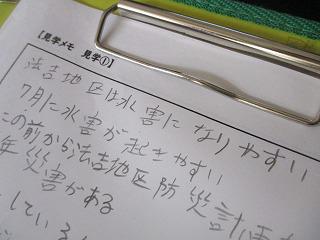 【見学メモ　見学①】
法吉地区は水害になりやすい
7月に水害が起きやすい
この前から法吉地区防災計画
年 災害がある
している